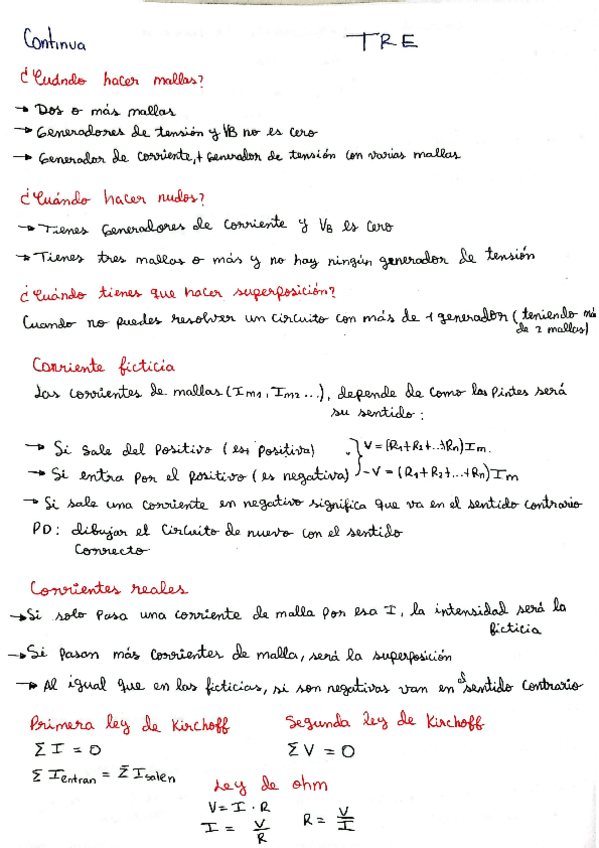 Continua
TRE
¿Cuándo hacer mallas?
→ Dos o más mallas
→ Generadores de tensión y VB no es cero
→ Generador de corriente, + Generador de tensión con varias mallas
¿Cuándo hacer nudos?
→ Tienes Generadores de corriente y VB es cero
→ Tienes tres mallas o más y no hay ningún generador de tensión
¿Cuándo tienes que hacer superposición?
Cuando no puedes resolver un circuito con más de 1 generador (teniendo más
de 2 mallas)
Corriente ficticia
Las corrientes de mallas (Im1, Im2 ...), depende de como las pintes será
su sentido:
→ Si sale del positivo (es + positiva) V = (R1+R2+...+Rn) Im.
→ Si entra por el positivo (es negativa) -V = (R1+R2+...+Rn) Im
→ Si sale una corriente en negativo significa que va en el sentido contrario
PD: dibujar el circuito de nuevo con el sentido
correcto
Corrientes reales
→ Si solo pasa una corriente de malla por esa I, la intensidad será la
ficticia
→ Si pasan más corrientes de malla, será la superposición
→ Al igual que en las ficticias, si son negativas van en sentido contrario
Primera ley de Kirchoff
Segunda ley de Kirchoff
Σ I = 0
Σ V = 0
Σ Ientran = Σ Isalen
Ley de ohm
V = I · R
I = V/R
R = V/I